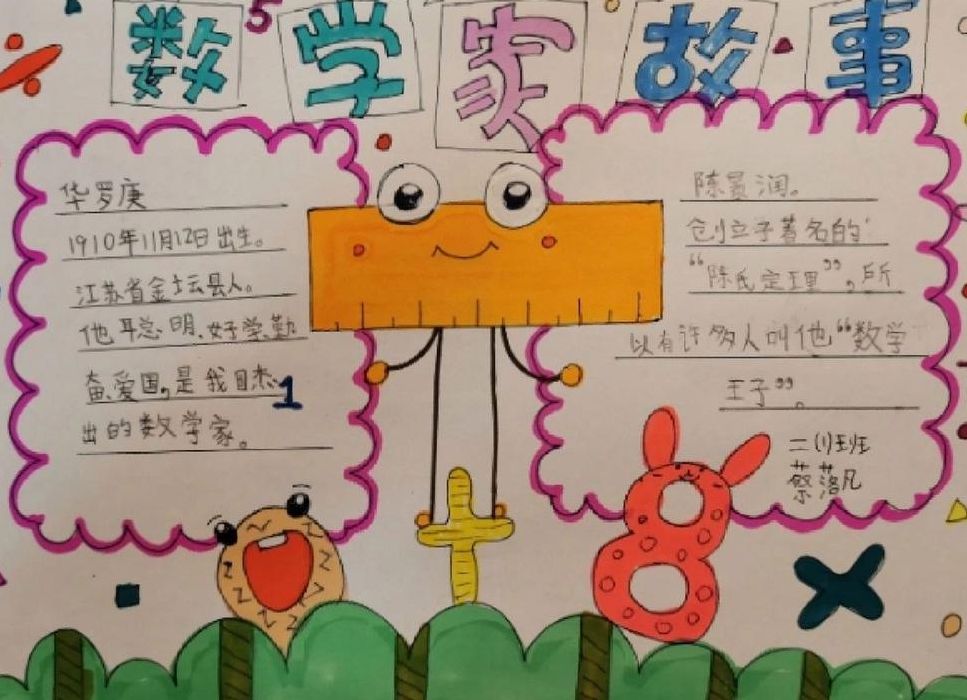 数学家故事
5
华罗庚
1910年11月12日出生。
江苏省金坛县人。
他聪明、好学、勤
奋、爱国,是我国杰
1
出的数学家。
陈景润。
创立了著名的
“陈氏定理”,所
以有许多人叫他“数学
王子”。
二(1)班
蔡落凡
8